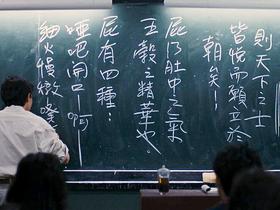 則天下之士
皆悅而願立於
朝矣！
屁乃肚中之氣
五穀之精華也
屁有四種：
啞吧開口－啊
細火慢燉－噗